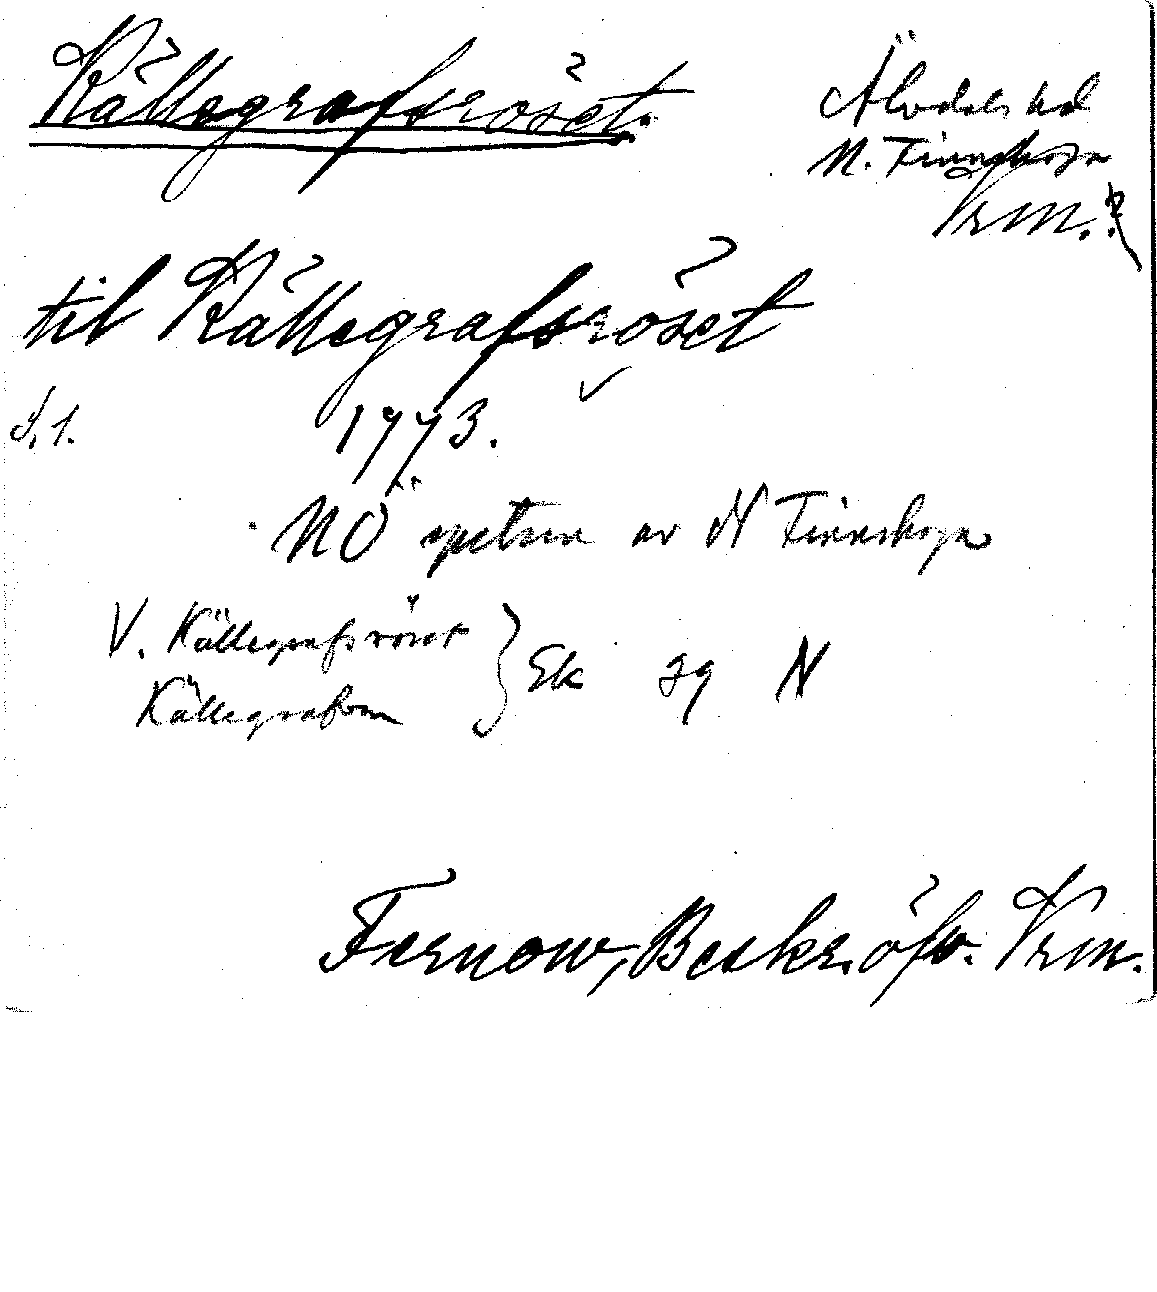 Källegrafsröset.
Älvdals hd
N. Finnskoga
Vrm.?
til Källegrafsröset
S. 1.
1773.
NÖ spetsen av N Finnskoga
V. Källegrafsröset
Källegrafven } Ek 39 N
Fernow, Beskr. öfv. Vrm.